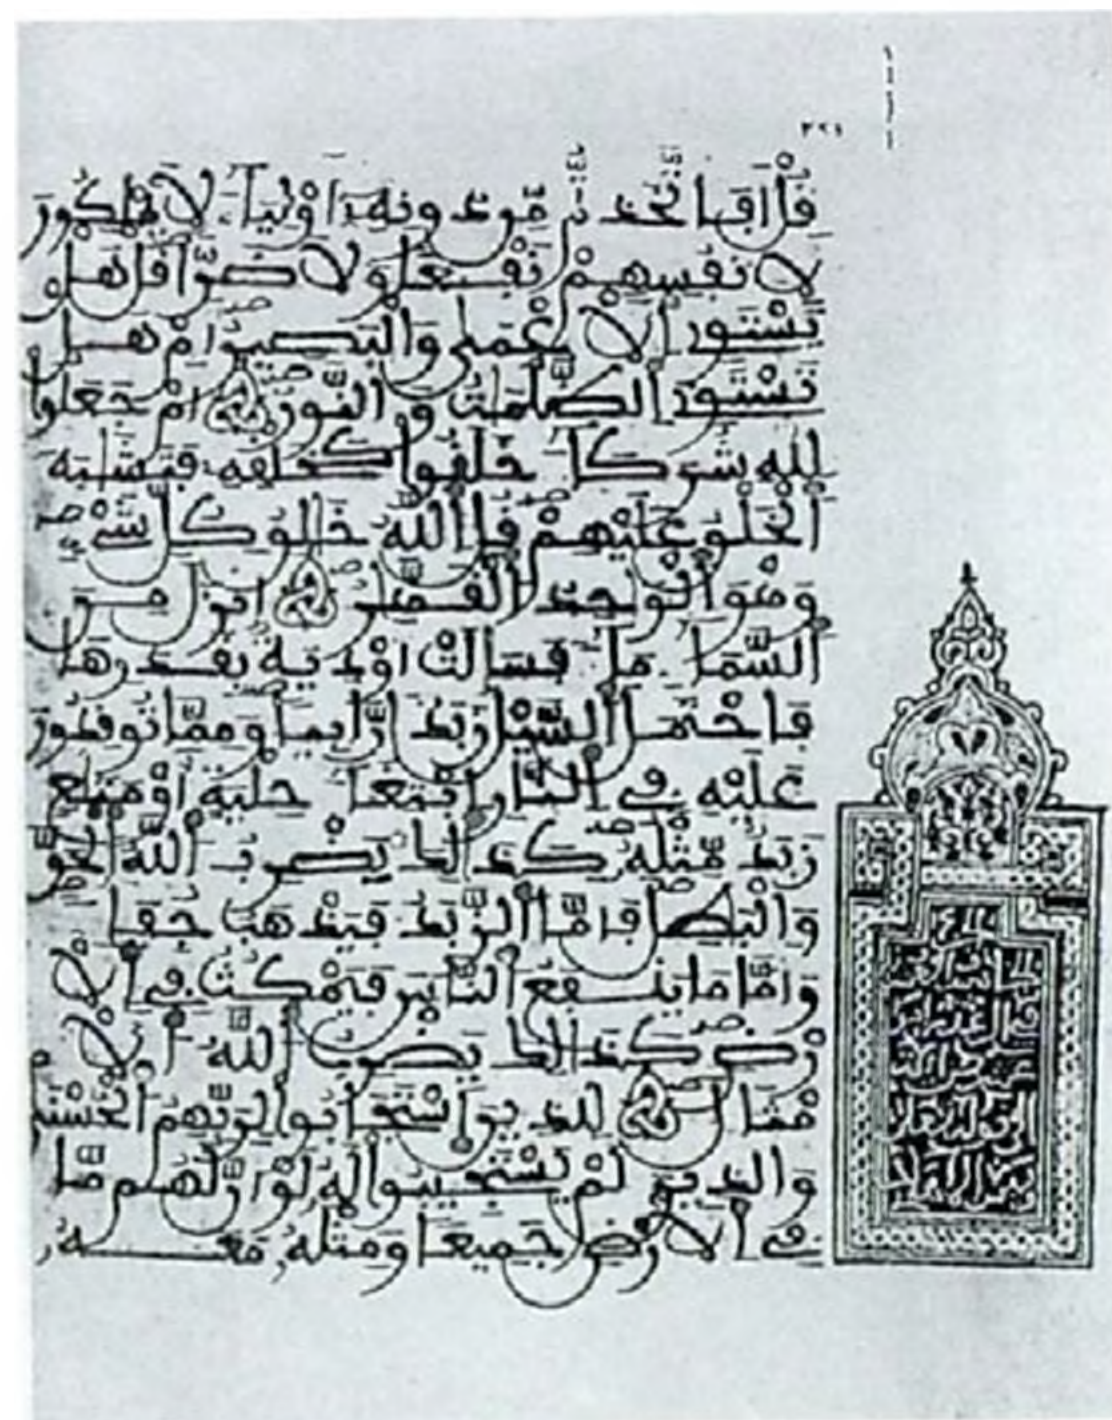 قل افاتخذتم من دونه اولياء لا يملكون
لانفسهم نفعا ولا ضرا قل هل
يستوى الاعمى والبصير ام هل
تستوى الظلمت والنور ام جعلوا
لله شركاء خلقوا كخلقه فتشبه
الخلق عليهم قل الله خلق كل شىء
وهو الوحد القهر انزل من
السماء ماء فسالت اودية بقدرها
فاحتمل السيل زبدا رابيا ومما توقدون
عليه فى النار ابتغاء حلية او متع
زبد مثله كذلك يضرب الله الحق
والبطل فاما الزبد فيذهب جفاء
واما ما ينفع الناس فيمكث فى الا
رض كذلك يضرب الله الا
مثال للذين استجابوا لربهم الحسنى
والذين لم يستجيبوا له لو ان لهم ما
فى الارض جميعا ومثله معه